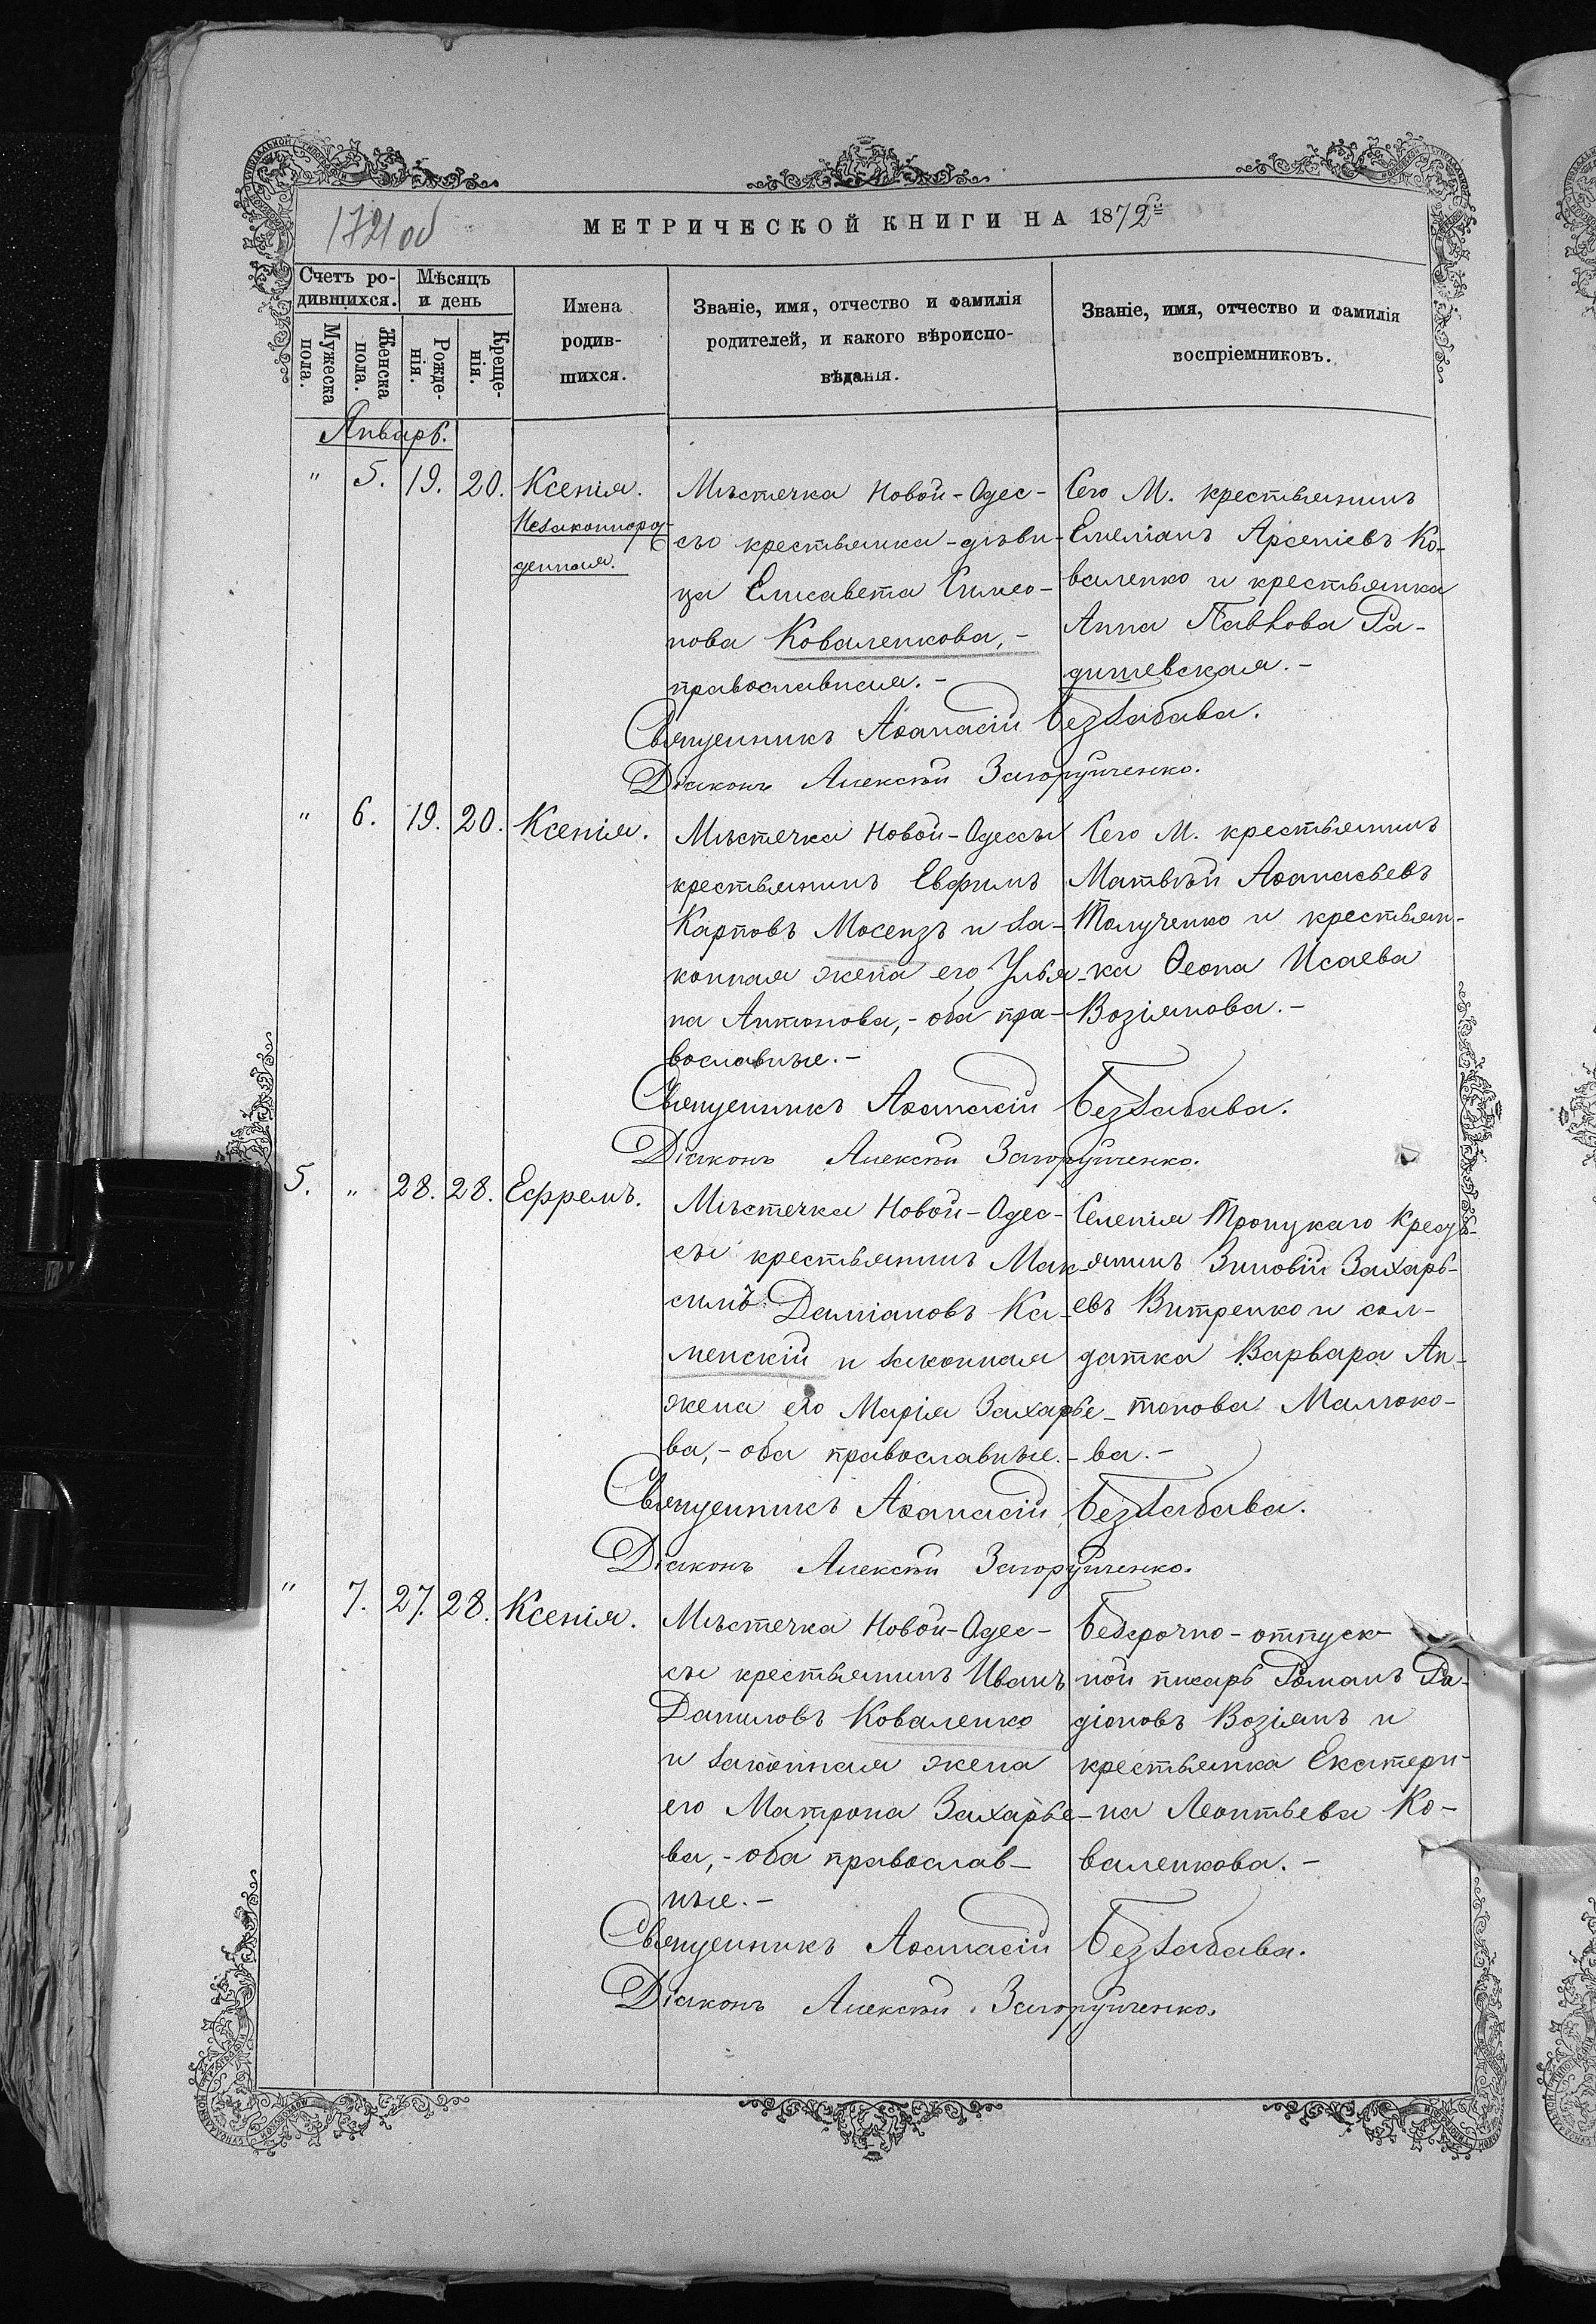 172 об
МЕТРИЧЕСКОЙ КНИГИ НА 1872й
Счетъ ро-
дившихся.
Мѣсяцъ
и день
Мужеска
пола.
Женска
пола.
Рожде-
нія.
Креще-
нія.
Имена
родив-
шихся.
Званіе, имя, отчество и фамилія
родителей, и какого вѣроиспо-
вѣданія.
Званіе, имя, отчество и фамилія
воспріемниковъ.
Январь.
" 5. 19. 20. Ксенія.
Незаконнорож-
денная.
Мѣстечка Новой-Одес-
сы крестьянка-дѣви-
ца Елисавета Симео-
нова Коваленкова,-
православная.-
Сего М. крестьянинъ
Емеліанъ Арсеніевъ Ко-
валенко и крестьянка
Анна Павлова Ра-
дишевская.-
Священникъ Аѳанасій Беззабава.
Діаконъ Алексѣй Загоруйченко.
" 6. 19. 20. Ксенія.
Мѣстечка Новой-Одессы
крестьянинъ Евфимъ
Карповъ Мосенз и за-
конная жена его Улья-
на Антонова,-оба пра-
вославные.-
Сего М. крестьянинъ
Матвѣй Аѳанасьевъ
Толученко и крестьян-
ка Ѳеона Исаева
Возіянова.-
Священникъ Аѳанасій Беззабава.
Діаконъ Алексѣй Загоруйченко.
5. " 28. 28. Ефремъ.
Мѣстечка Новой-Одес-
сы крестьянинъ Мак-
симъ Даміановъ Ка-
менскій и законная
жена его Марія Захарье-
ва,-оба православные.-
Селенія Троицкаго крест-
янинъ Зиновій Захарь-
евъ Витренко и сол-
датка Варвара Ан-
тонова Малоко-
ва.-
Священникъ Аѳанасій Беззабава.
Діаконъ Алексѣй Загоруйченко.
" 7. 27. 28. Ксенія.
Мѣстечка Новой-Одес-
сы крестьянинъ Иванъ
Даниловъ Коваленко
и законная жена
его Матрона Захарье-
ва,-оба православ-
ные.-
Безсрочно-отпуск-
ной писарь Романъ Ра-
діоновъ Возіянъ и
крестьянка Екатери-
на Леонтьева Ко-
валенкова.-
Священникъ Аѳанасій Беззабава.
Діаконъ Алексѣй Загоруйченко.